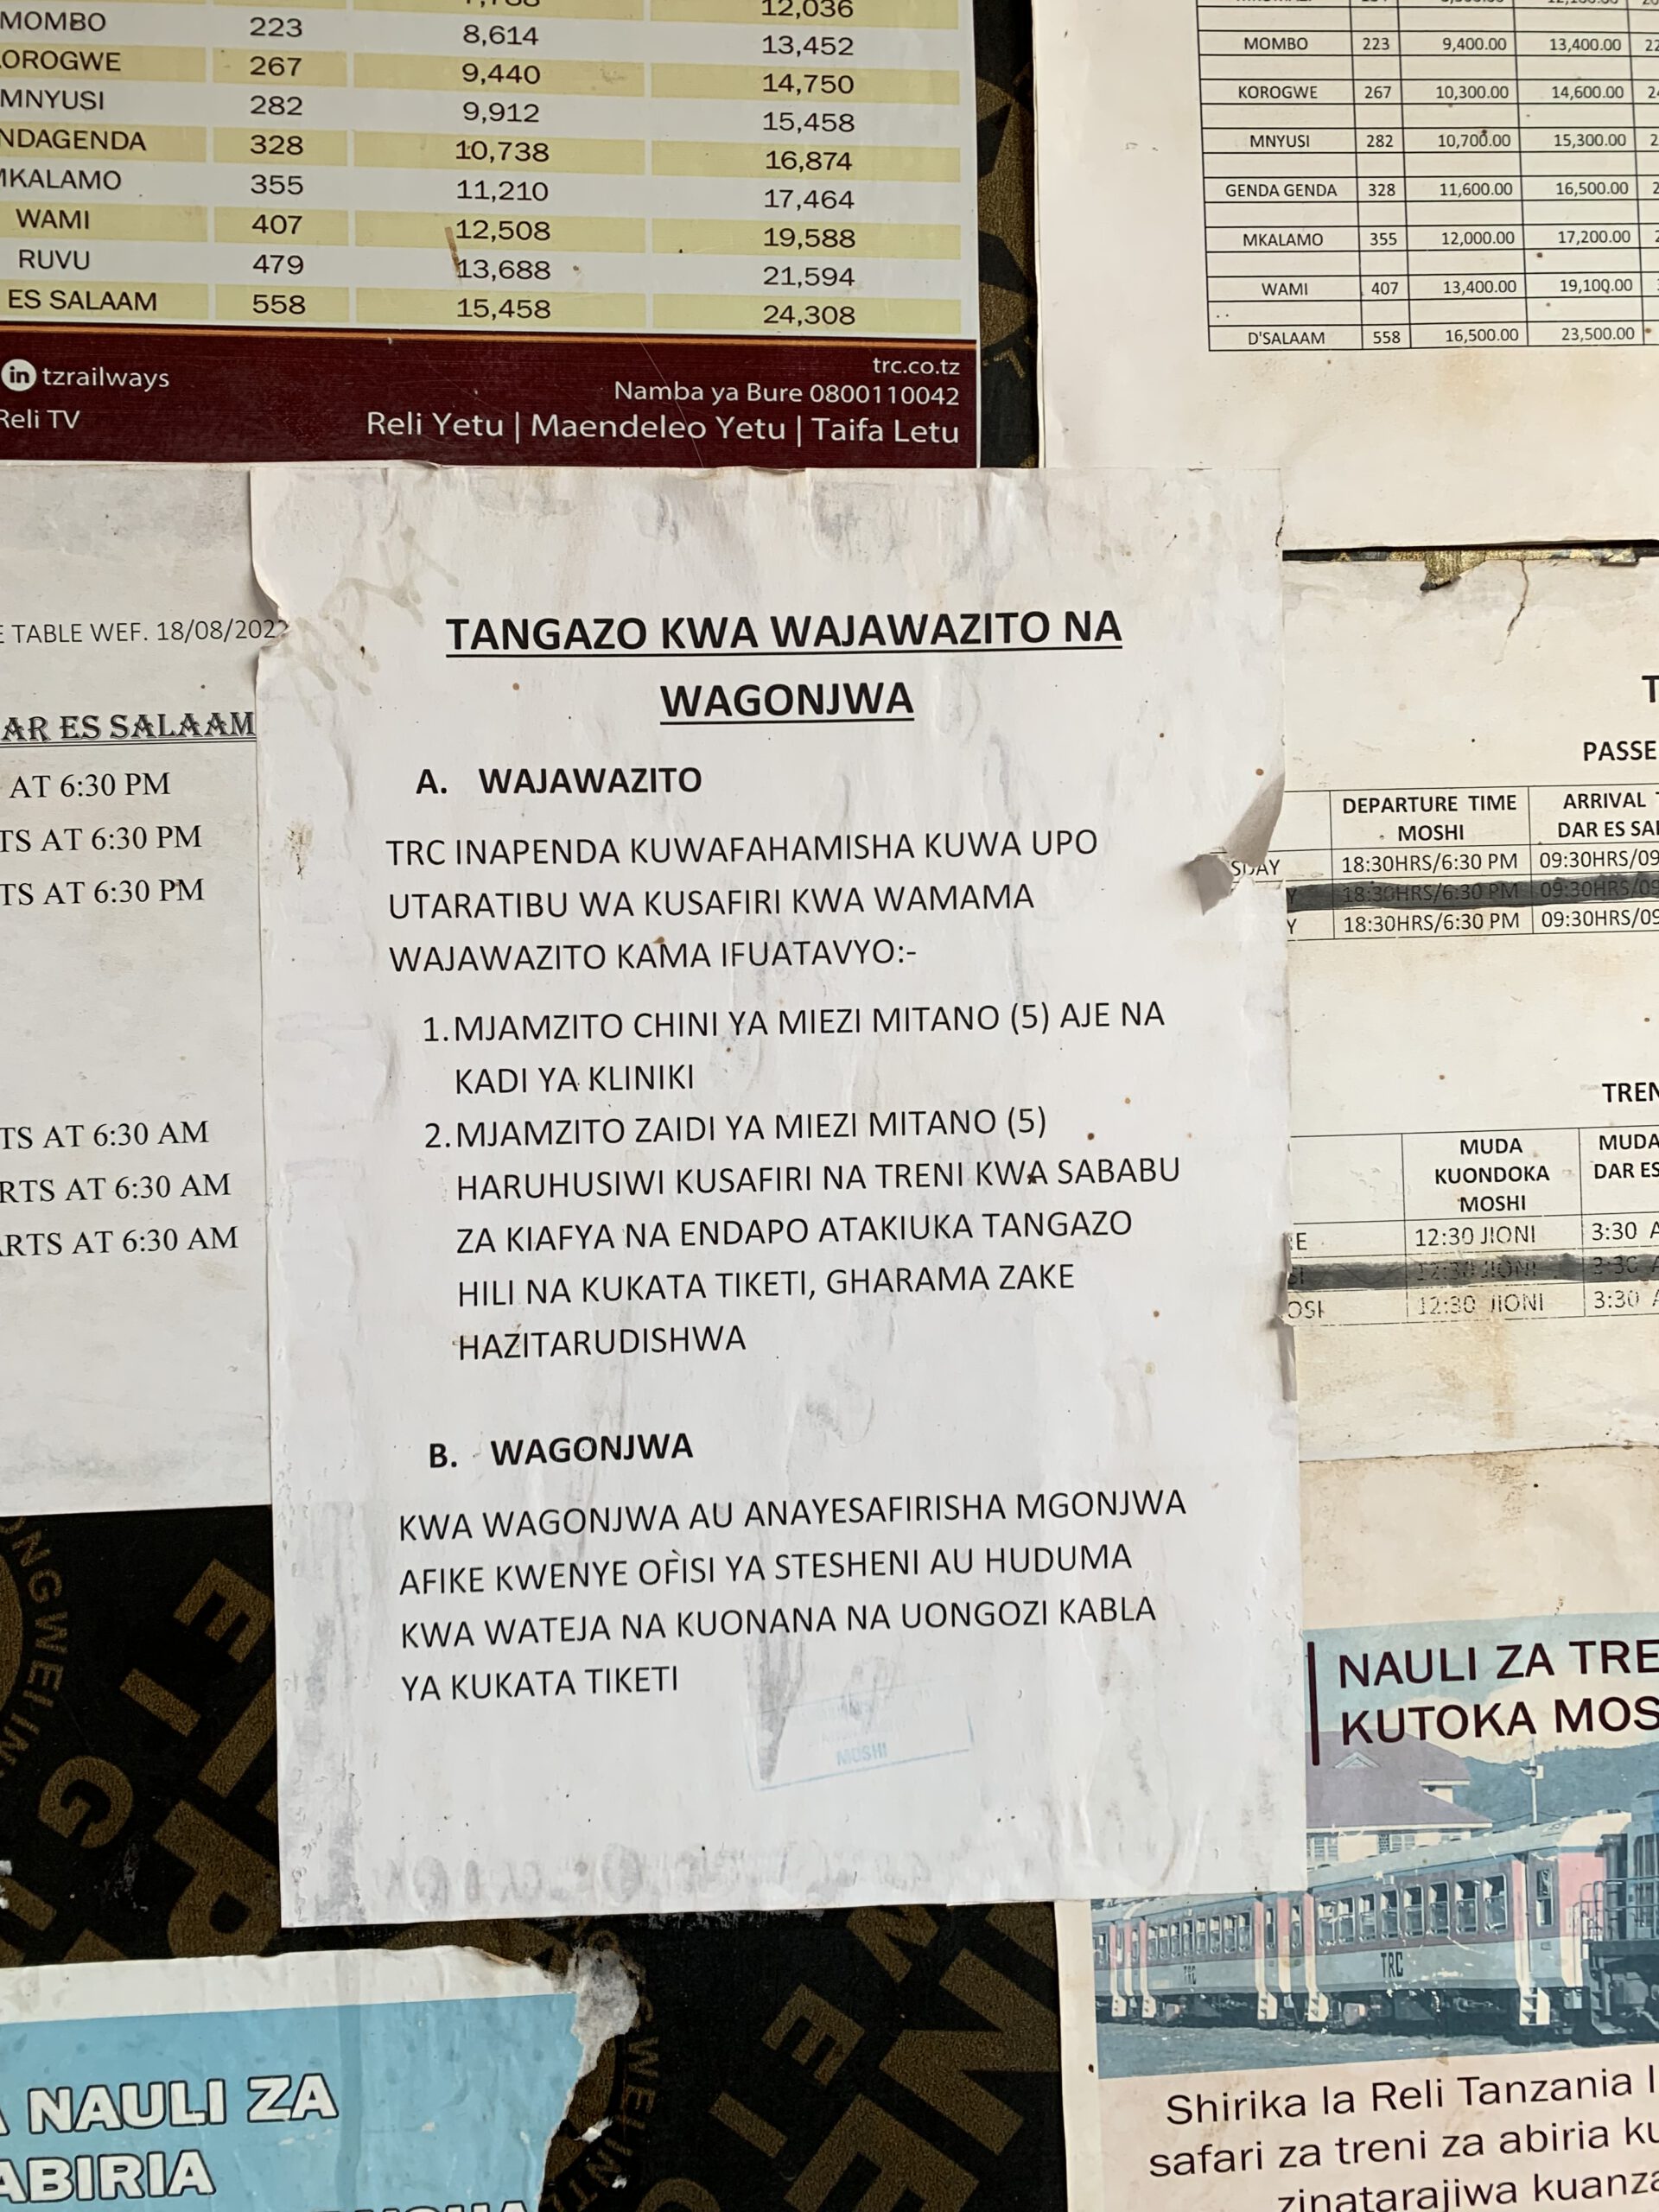 12,036
MOMBO 223 8,614 13,452
OROGWE 267 9,440 14,750
MNYUSI 282 9,912 15,458
NDAGENDA 328 10,738 16,874
MKALAMO 355 11,210 17,464
WAMI 407 12,508 19,588
RUVU 479 13,688 21,594
ES SALAAM 558 15,458 24,308
in tzrailways
Reli TV
trc.co.tz
Namba ya Bure 0800110042
Reli Yetu | Maendeleo Yetu | Taifa Letu
MOMBO 223 9,400.00 13,400.00
KOROGWE 267 10,300.00 14,600.00
MNYUSI 282 10,700.00 15,300.00
GENDA GENDA 328 11,600.00 16,500.00
MKALAMO 355 12,000.00 17,200.00
WAMI 407 13,400.00 19,100.00
D'SALAAM 558 16,500.00 23,500.00
E TABLE WEF. 18/08/2022
AR ES SALAAM
AT 6:30 PM
TS AT 6:30 PM
TS AT 6:30 PM
TS AT 6:30 AM
RTS AT 6:30 AM
ARTS AT 6:30 AM
TANGAZO KWA WAJAWAZITO NA
WAGONJWA
A. WAJAWAZITO
TRC INAPENDA KUWAFAHAMISHA KUWA UPO
UTARATIBU WA KUSAFIRI KWA WAMAMA
WAJAWAZITO KAMA IFUATAVYO:-
1. MJAMZITO CHINI YA MIEZI MITANO (5) AJE NA
KADI YA KLINIKI
2. MJAMZITO ZAIDI YA MIEZI MITANO (5)
HARUHUSIWI KUSAFIRI NA TRENI KWA SABABU
ZA KIAFYA NA ENDAPO ATAKIUKA TANGAZO
HILI NA KUKATA TIKETI, GHARAMA ZAKE
HAZITARUDISHWA
B. WAGONJWA
KWA WAGONJWA AU ANAYESAFIRISHA MGONJWA
AFIKE KWENYE OFISI YA STESHENI AU HUDUMA
KWA WATEJA NA KUONANA NA UONGOZI KABLA
YA KUKATA TIKETI
MOSHI
T
PASSE
DEPARTURE TIME ARRIVAL T
MOSHI DAR ES SAL
SDAY 18:30HRS/6:30 PM 09:30HRS/09
Y 18:30HRS/6:30 PM 09:30HRS/09
Y 18:30HRS/6:30 PM 09:30HRS/09
TREN
MUDA MUDA
KUONDOKA DAR ES
MOSHI
E 12:30 JIONI 3:30 A
SI 12:30 JIONI 3:30 A
OSI 12:30 JIONI 3:30 A
NAULI ZA TRE
KUTOKA MOS
TRC
TRC
Shirika la Reli Tanzania l
safari za treni za abiria ku
zinatarajiwa kuanza
A NAULI ZA
ABIRIA